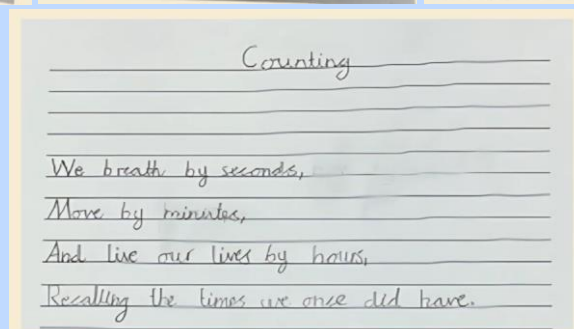 Counting
We breath by seconds,
Move by minutes,
And live our lives by hours,
Recalling the times we once did have.